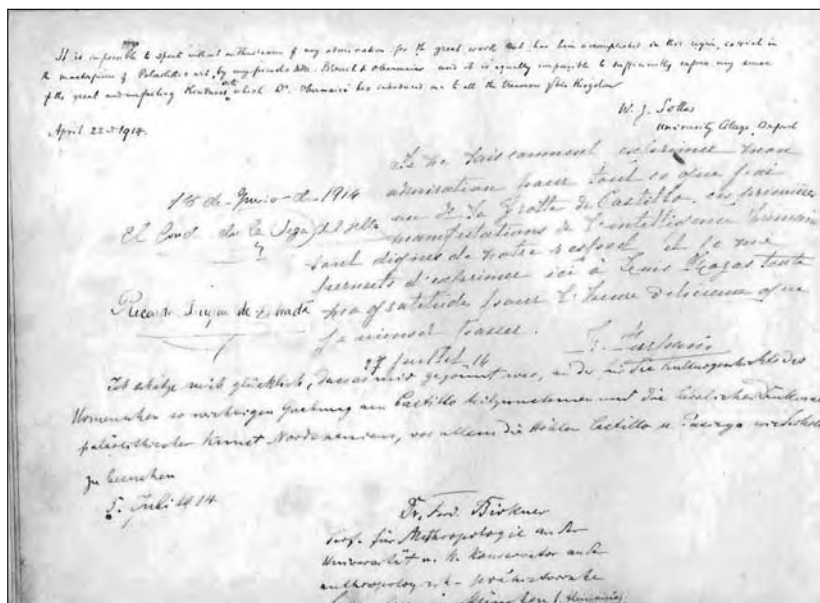 It is impossible to speak without enthusiasm of my admiration for the great work that has been accomplished in this region, so rich in
the masterpieces of Palaeolithic art, by my friends Breuil & Obermaier and it is equally impossible to sufficiently express my sense
of the great and unfailing kindness with which Dr. Obermaier has introduced me to all the treasures of his Kingdom
W. J. Sollas
University College, Oxford
April 22nd 1914.
18 de Junio de 1914
El Conde de la Vega del Sella
Ricardo Duque de Estrada
Je ne sais comment exprimer mon
admiration pour tout ce que j'ai
vu de la Grotte de Castillo, ces premières
manifestations de l'intelligence humaine
sont dignes de notre respect et je me
permets d'exprimer ici à toute
ma gratitude pour l'heure délicieuse que
je viens de passer.
27 Juillet 14
Ich schätze mich glücklich, dass es mir gegönnt war, an der für die Anthropogeschichte des
so wichtigen Grabung am Castillo teilzunehmen und die
palaeolithischer Kunst Nordspaniens, vor allem die Höhlen Castillo u. Pasiega
zu besuchen
5. Juli 1914
Dr. Ferd. Birkner
Prof. für Anthropologie an der
Universität u. II. Konservator an der
anthropolog. - prähistorische
München